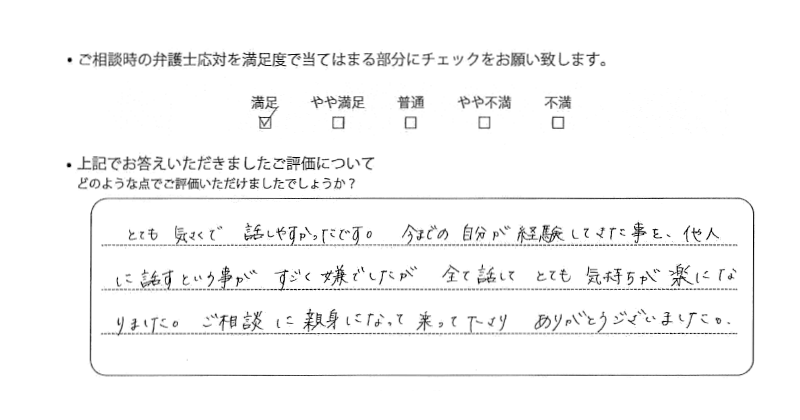 • ご相談時の弁護士応対を満足度で当てはまる部分にチェックをお願い致します。
満足 やや満足 普通 やや不満 不満
☑ ☐ ☐ ☐ ☐
• 上記でお答えいただきましたご評価について
どのような点でご評価いただけましたでしょうか？
とても 気さくで 話しやすかったです。 今までの 自分が 経験してきた事を、他人
に話すという事が すごく 嫌でしたが 全て話して とても 気持ちが 楽にな
りました。 ご相談 に 親身になって 乗って下さり ありがとうございました。